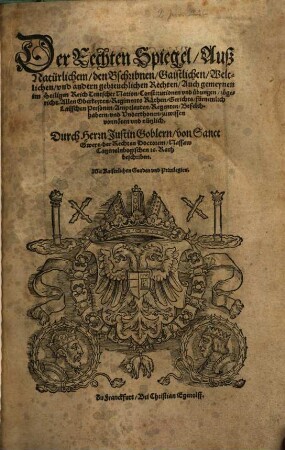 Der Rechten Spiegel/ Auß
Natürlichem/ den Bschribnen/ Gaistlichen/ Welt-
lichen/ vnd andern gebreuchlichen Rechten/ Auch gemeynen
im Heiligen Reich Teutscher Nation Constitutionen vnd übungen
Allen Oberkeyten/ Regiments Räthen/
Personen/
vnd
Durch Herrn Justin Goblern/ von Sanct
Gwer/ der Rechten Doctorem/ Nassaw
Catzenelnbogischen ꝛc. Rath
beschriben.
Mit Kaiserlichen Gnaden vnd Privilegien.
Zu Franckfurt/ Bei Christian Egenolff.